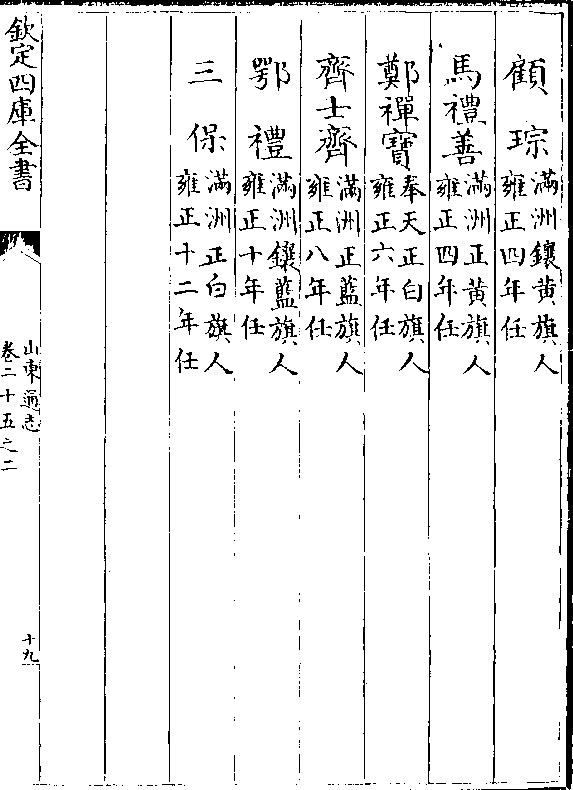 顧琮滿洲鑲黄旗人雍正四年任
馬禮善滿洲正黄旗人雍正四年任
鄭禪寶奉天正白旗人雍正六年任
齊士齊滿洲正藍旗人雍正八年任
鄂禮滿洲鑲藍旗人雍正十年任
三保滿洲正白旗人雍正十二年任
欽定四庫全書
山東通志
卷二十五之二
十九